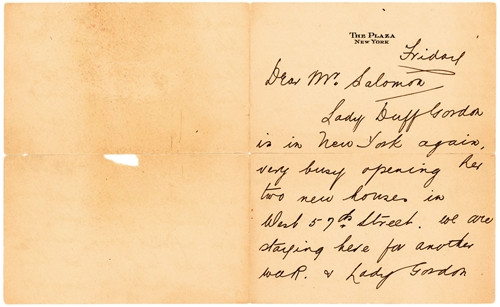 THE PLAZA
NEW YORK
Friday
Dear Mr. Salomon
Lady Duff Gordon
is in New York again,
very busy opening her
two new houses in
West 57th Street. we are
staying here for another
week. & Lady Gordon